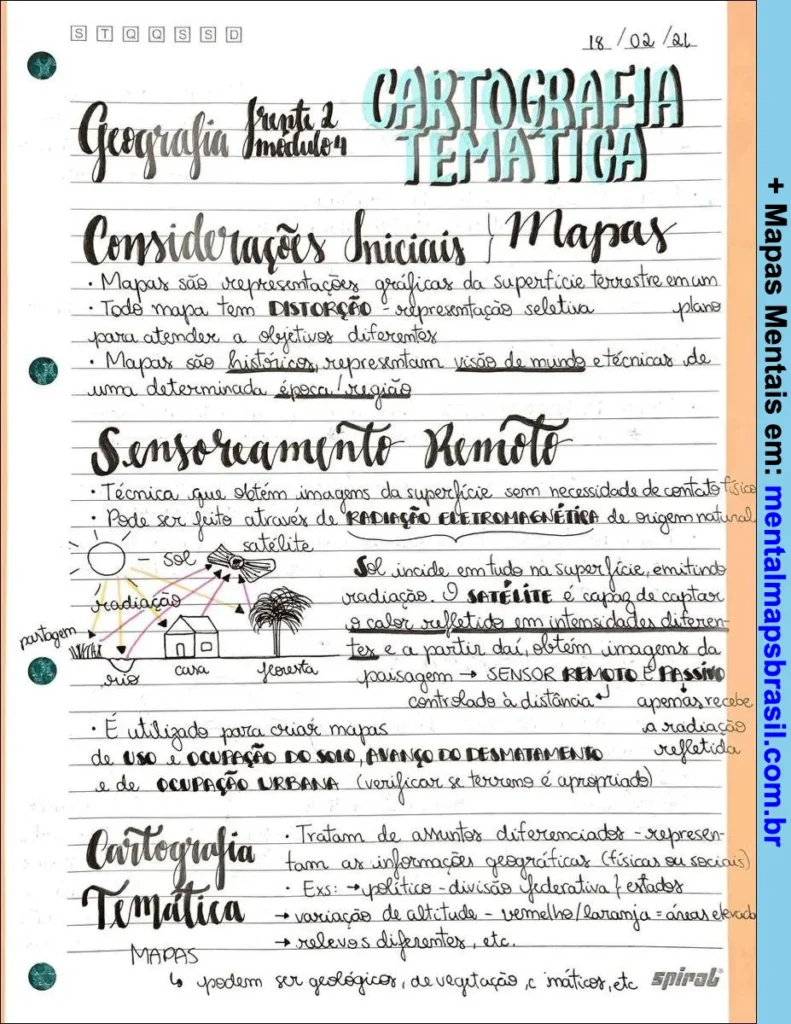 S T Q Q S S D
18/02/21
Geografia frente 2
módulo 4
CARTOGRAFIA
TEMÁTICA
Considerações Iniciais } Mapas
· Mapas são representações gráficas da superfície terrestre em um
plano
· Todo mapa tem DISTORÇÃO - representação seletiva
para atender a objetivos diferentes
· Mapas são históricos, representam visão de mundo e técnicas de
uma determinada época/região
Sensoreamento Remoto
· Técnica que obtém imagens da superfície sem necessidade de contato físico
· Pode ser feito através de RADIAÇÃO ELETROMAGNÉTICA de origem natural
- sol
satélite
radiação
pastagem
rio
casa
floresta
Sol incide em tudo na superfície, emitindo
radiação. O SATÉLITE é capaz de captar
o calor refletido em intensidades diferen-
tes e a partir daí, obtém imagens da
paisagem → SENSOR REMOTO E PASSIVO
controlado à distância
apenas recebe
a radiação
refletida
· É utilizado para criar mapas
de USO e OCUPAÇÃO DO SOLO, AVANÇO DO DESMATAMENTO
e de OCUPAÇÃO URBANA (verificar se terreno é apropriado)
Cartografia
Temática
MAPAS
· Tratam de assuntos diferenciados - represen-
tam as informações geográficas (físicas ou sociais)
· Exs: → político - divisão federativa / estados
→ variação de altitude - vermelho/laranja = áreas elevad
→ relevos diferentes, etc.
↳ podem ser geológicos, de vegetação, c máticos, etc
spiral
+ Mapas Mentais em: mentalmapsbrasil.com.br